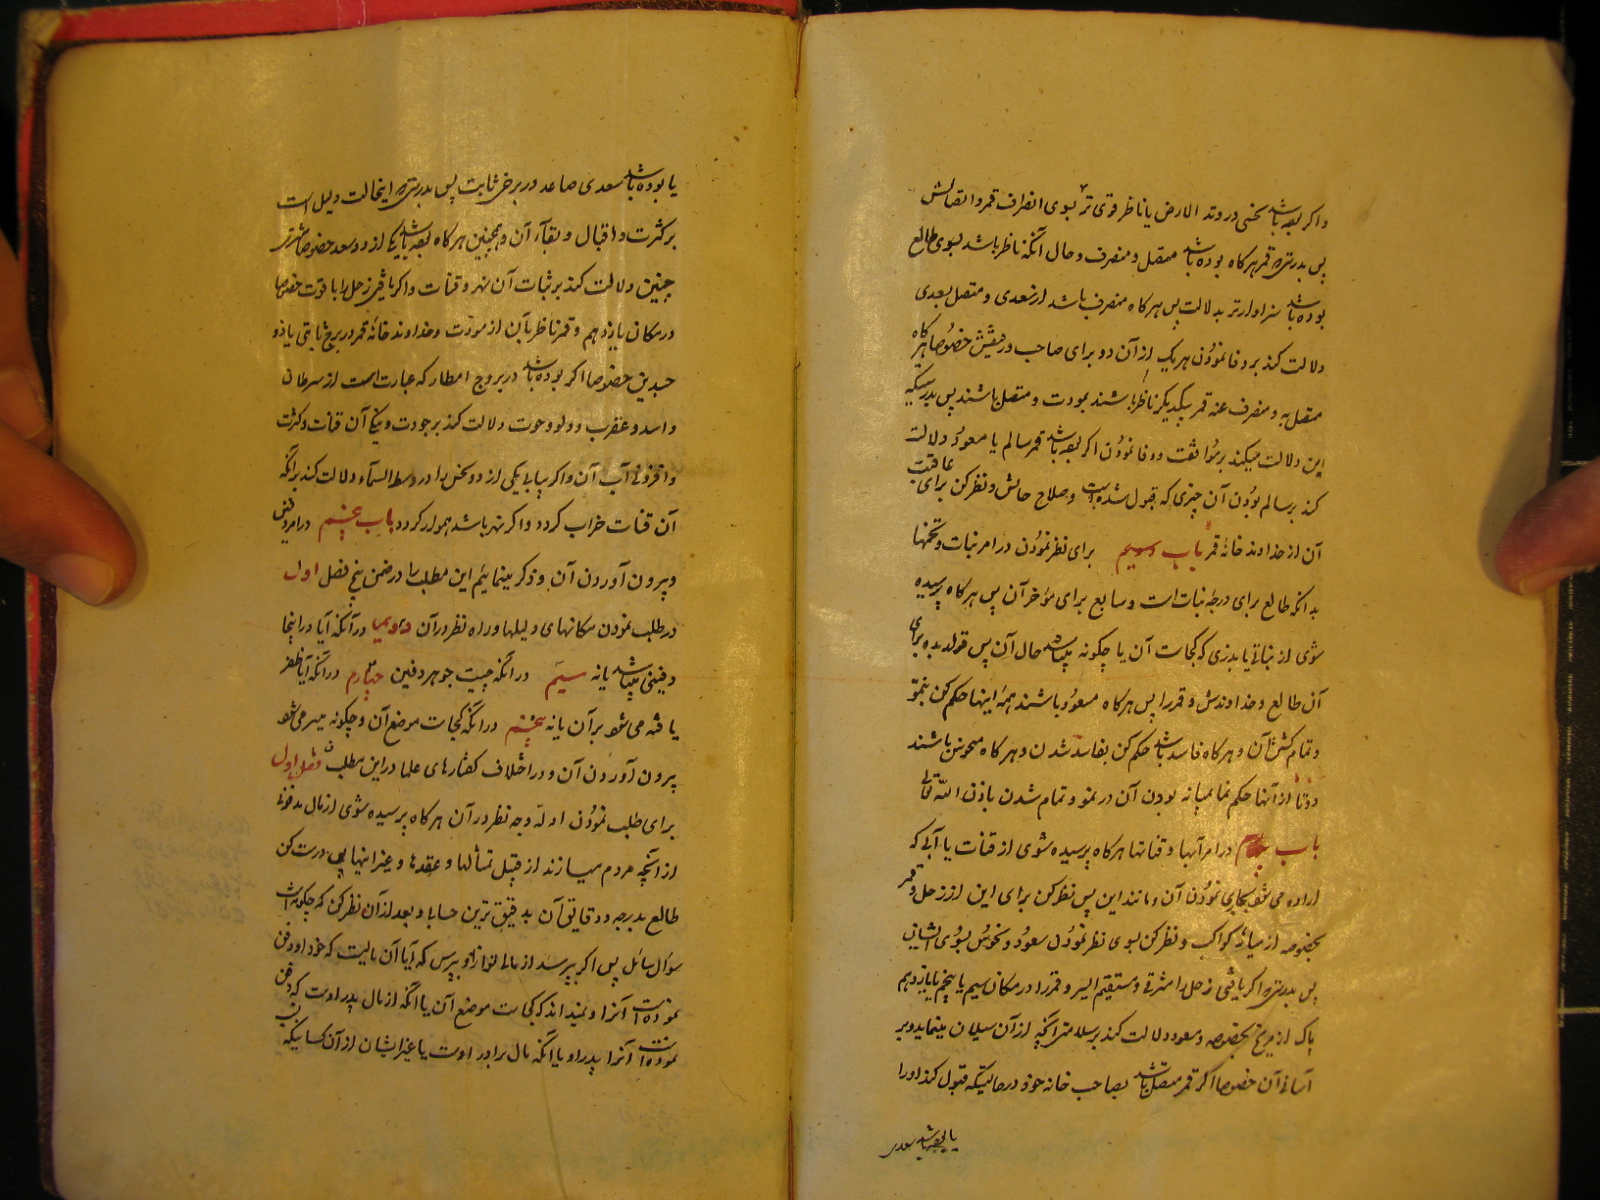 واکر بوده باشد نحسی در وتد الارض یا ناظر قوی تر بسوی انصراف قمر و اتصالش
پس بدرستیکه قمر هرکاه بوده باشد متصل و منصرف و حال آنگه ناظر باشد بسوی طالع
بوده باشد سزاوارتر بدلالت پس هرکاه منصرف باشد از سعدی و متصل بسعدی
دلالت کند بر وفا نمودن هریک از آن دو برای صاحب و رفیقش خصوصا هرکاه
متصل به و منصرف عنه قمر بیکدیکر ناظر باشند بمودت و متصل باشند پس بدرستیکه
این دلالت میکند بر موافقت و وفا نمودن اکر بوده باشد قمر سالم یا مسعود دلالت
کند بر سالم بودن آن چیزی که قبول شده است و صلاح حالش و نظر کن برای عاقبت
آن از خداوند خانهٔ قمر باب سیم برای نظر نمودن در امر نبات و تخمها
بدانکه طالع برای درجهٔ نبات است و سابع برای مؤخر آن پس هرکاه پرسیده
شوی از نباتی یا بذری که کجاست آن یا چکونه میباشد حال آن پس قوت بده برای
آن طالع و خداوندش و قمر را پس هرکاه مسعود باشند همهٔ اینها حکم کن بنمو
و تمام کشتن آن و هرکاه فاسد باشد حکم کن بفاسد شدن و هرکاه منحوس باشند
دوتا از آنها حکم نما بمیانه بودن آن در نمو و تمام شدن باذن الله تعالی
باب چهارم در امر آبها و قناتها هرکاه پرسیده شوی از قنات یا آبی که
اراده می شود بجاری نمودن آن و مانند این پس نظر کن برای این از زحل و قمر
بخصوصه از میانهٔ کواکب و نظر کن بسوی نظر نمودن سعود و نحوس بسوی ایشان
پس بدرستیکه اکر یافتی زحل را مشرقی و مستقیم السیر و قمر را در مکان سیم یا پنجم یا یازدهم
پاک از مریخ بخصوصه و مسعود دلالت کند بر سلامتی آنچه از آن سیلان مینماید و بر
آسانی آن خصوصا اکر قمر متصل باشد بصاحب خانه خود در حالتیکه قبول کند او را
یا بوده باشد سعدی
یا بوده باشد سعدی صاعد در برجی ثابت پس بدرستیکه اینحالت دلیل است
بر کثرت و اقبال و بقآء آن و همچنین هرکاه بوده باشد یکی از دو سعد خصوصا مشتری
چنین دلالت کند بر ثبات آن نهر و قنات و اکر یافتی زحل را با قوت خصوصا
در مکان یازدهم و قمر ناظر بآن از مودّت و خداوند خانهٔ قمر در برج ثابتی یا ذو
جسدین خصوصا اکر بوده باشد در بروج امطار که عبارت است از سرطان
و اسد و عقرب و دلو و حوت دلالت کند بر جودت و نیکی آن قنات و کثرت
و افزونی آب آن و اکر بیابی یکی از دو نحس را در وسط السمآء دلالت کند برآنکه
آن قنات خراب کردد و اکر نهر باشد هموار کردد باب پنجم در امر دفین
و بیرون آوردن آن و ذکر مینمائیم این مطلب را در ضمن پنج فصل اول
در طلب نمودن مکانهای دلیلها و راه نظر در آن دویم در آنکه آیا در اینجا
دفینی میباشد یا نه سیّم در آنکه چیست جوهر دفین چهارم در آنکه آیا ظفر
یافته می شود بر آن یا نه پنجم در آنکه کجاست موضع آن و چکونه میسر می شود
بیرون آوردن آن و در اختلاف کفتارهای علما در این مطلب فصل اول
برای طلب نمودن ادلّه وجه نظر در آن هرکاه پرسیده شوی از مال مدفونی
از آنچه مردم میسازند از قبیل تمثالها و عقدها و غیر اینها پس درست کن
طالع بدرجه و دقایق آن بدقیق ترین حسابا و بعد از آن نظر کن که چکونه است
سؤال سائل پس اکر بپرسد از مالی تو از او بپرس که آیا آن مالیست که خود او دفن
نموده است آنرا و نمیداند که کجاست موضع آن یا آنکه از مال پدر اوست که دفن
نموده است آنرا پدر او یا آنکه مال برادر اوست یا غیر ایشان از آن کسانیکه